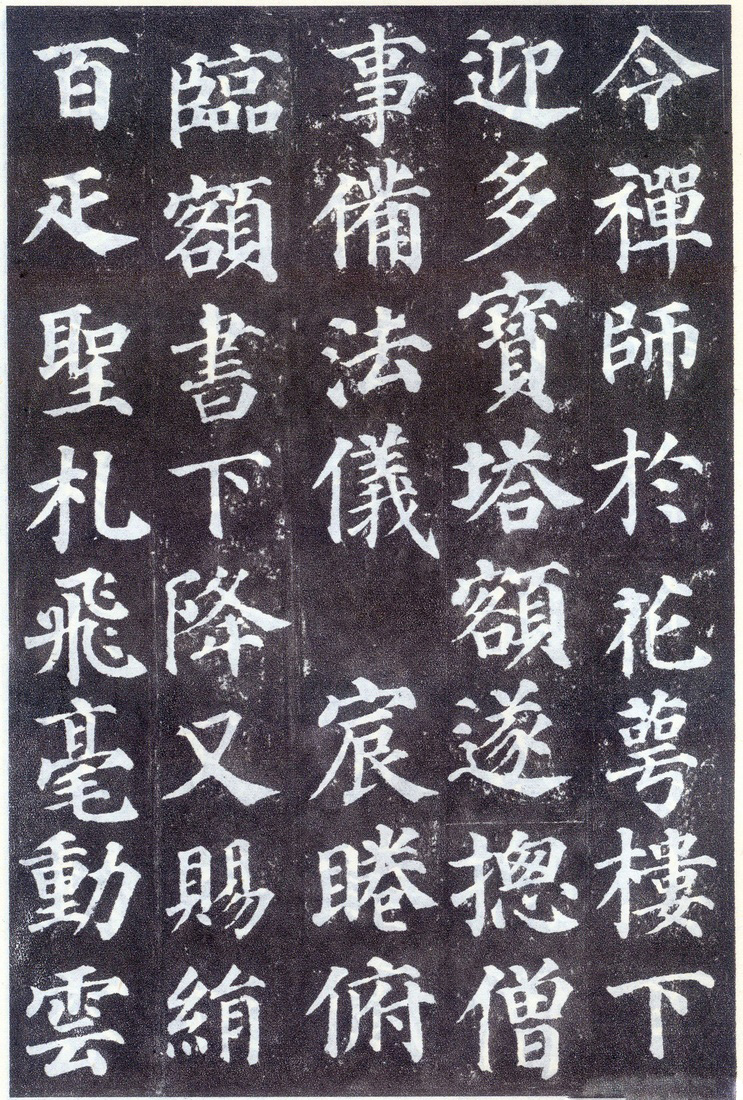 令禪師於花萼樓下
迎多寶塔額遂摠僧
事備法儀 宸睠俯
臨額書下降又賜絹
百疋聖札飛毫動雲